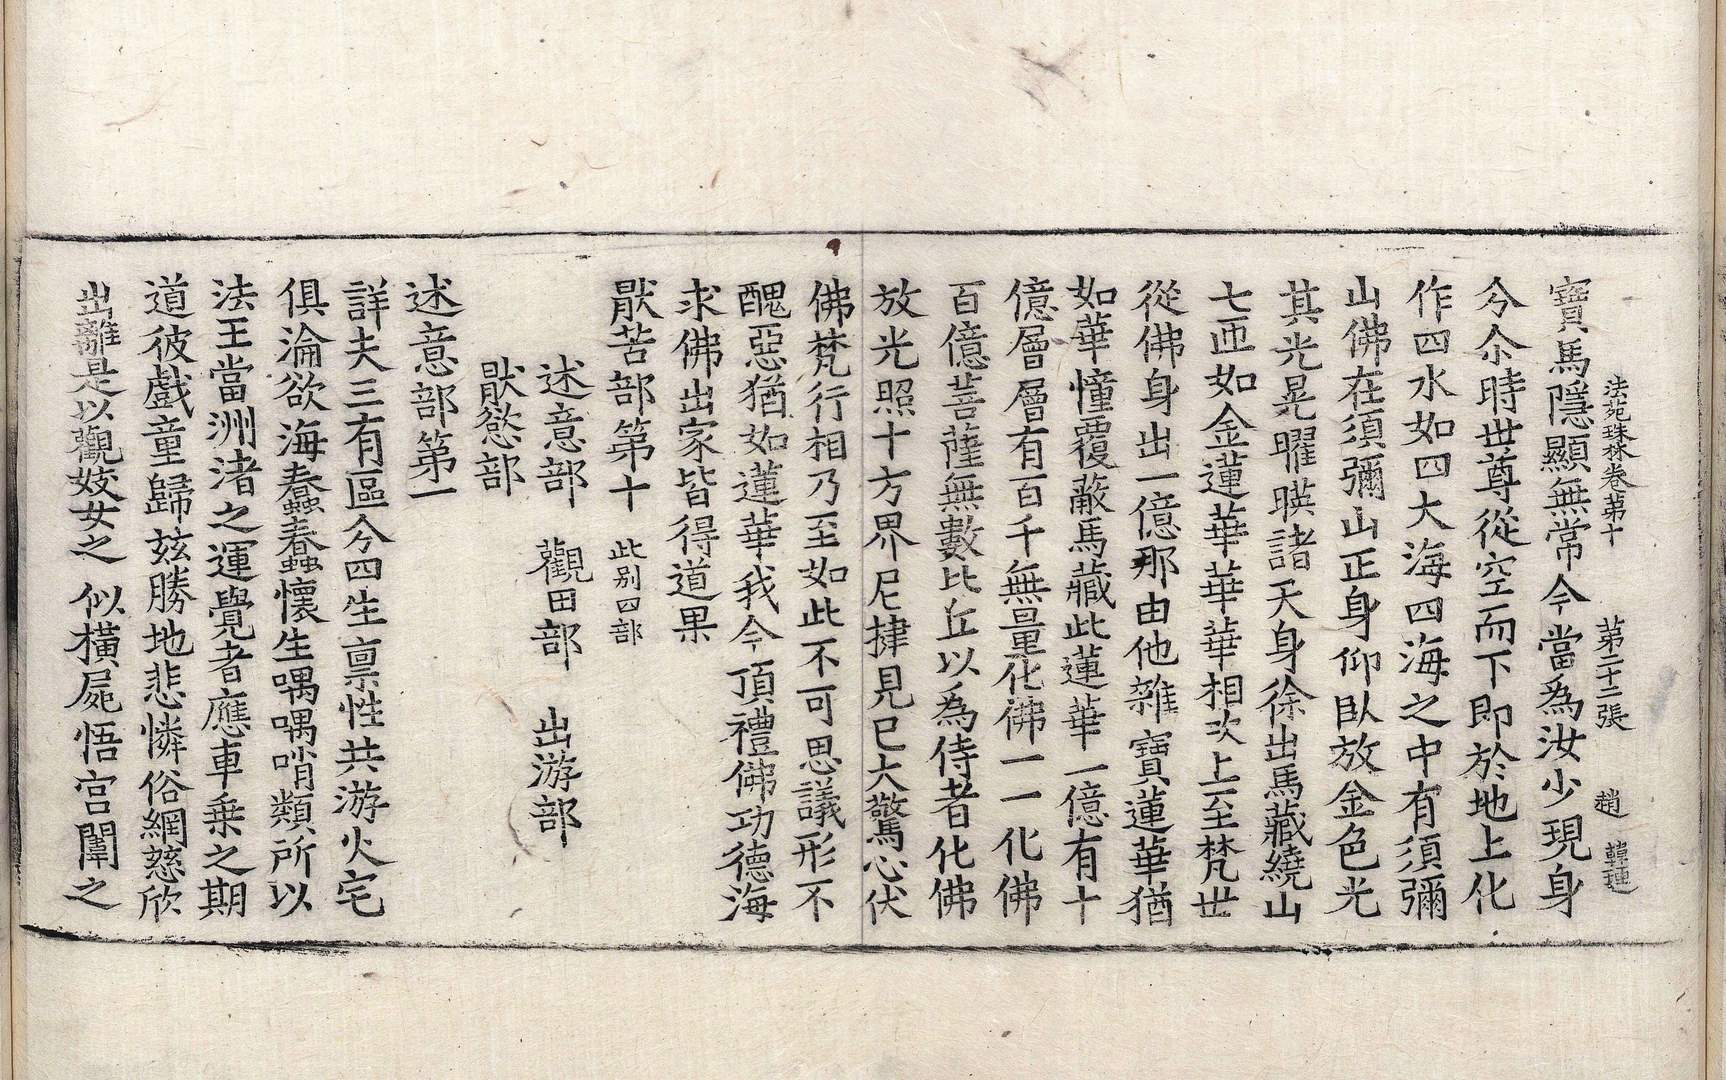 法苑珠林卷苐十　苐二十二張　趙　韓蓮
寶馬隱顯無常今當為汝少現身
分尒時世尊從空而下即於地上化
作四水如四大海四海之中有須彌
山佛在須彌山正身仰臥放金色光
其光晃曜暎諸天身徐出馬藏繞山
七匝如金蓮華華華相次上至梵世
從佛身出一億那由他雜寶蓮華猶
如華憧覆蔽馬藏此蓮華一億有十
億層層有百千無量化佛一一化佛
百億菩薩無數比丘以為侍者化佛
放光照十方界尼揵見已大驚心伏
佛梵行相乃至如此不可思議形不
醜惡猶如蓮華我今頂禮佛功德海
求佛出家皆得道果
猒苦部第十　此別四部
述意部　觀田部　出游部
猒慾部
述意部第一
詳夫三有區分四生禀性共游火宅
俱淪欲海蠢蠢懷生喁喁哨類所以
法王當洲渚之運覺者應車乘之期
道彼戲童歸玆勝地悲憐俗網慈欣
出離是以觀妓女之似橫屍悟宫闈之